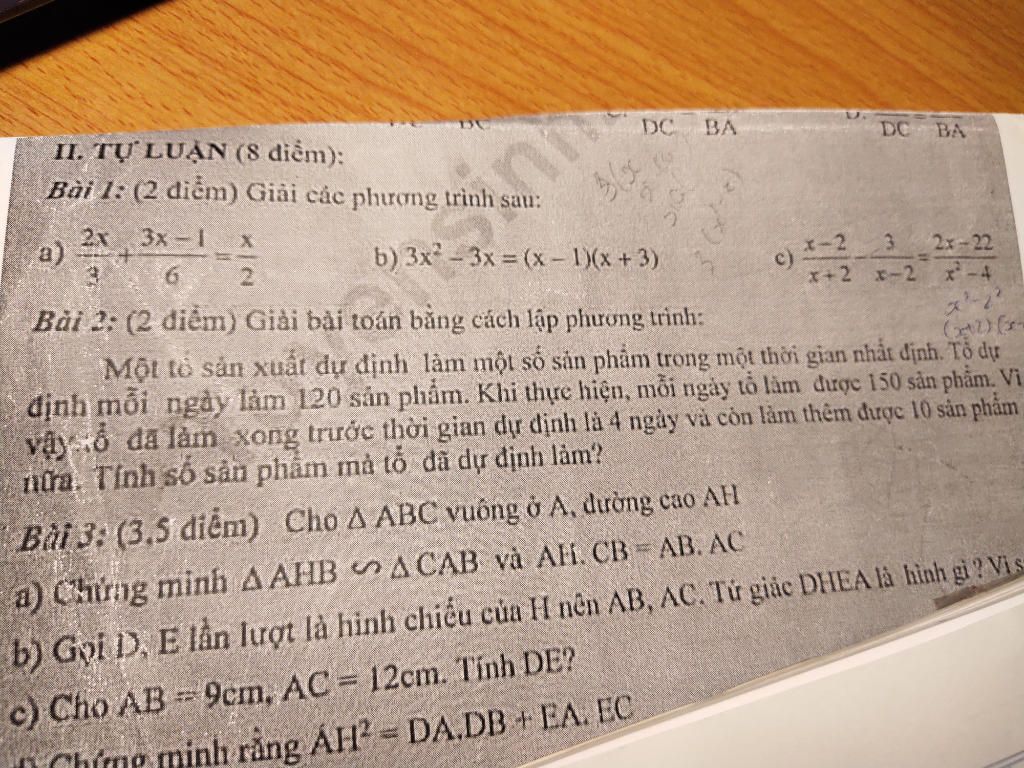 DC BA
DC BA
II. TỰ LUẬN (8 điểm):
Bài 1: (2 điểm) Giải các phương trình sau:
a) 2x/3 + 3x – 1/6 = x/2 b) 3x² – 3x = (x – 1)(x + 3) c) x – 2/x + 2 – 3/x – 2 = 2x – 22/x² – 4
Bài 2: (2 điểm) Giải bài toán bằng cách lập phương trình:
Một tổ sản xuất dự định làm một số sản phẩm trong một thời gian nhất định. Tổ dự
định mỗi ngày làm 120 sản phẩm. Khi thực hiện, mỗi ngày tổ làm được 150 sản phẩm. Vì
vậy tổ đã làm xong trước thời gian dự định là 4 ngày và còn làm thêm được 10 sản phẩm
nữa. Tính số sản phẩm mà tổ đã dự định làm?
Bài 3: (3,5 điểm) Cho Δ ABC vuông ở A, đường cao AH
a) Chứng minh Δ AHB ∽ Δ CAB và AH. CB = AB. AC
b) Gọi D, E lần lượt là hình chiếu của H nên AB, AC. Tứ giác DHEA là hình gì ? Vì s
c) Cho AB = 9cm, AC = 12cm. Tính DE?
Chứng minh rằng AH² = DA.DB + EA. EC